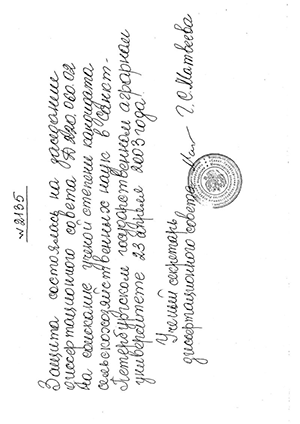 w 2135
Защита состоялась на заседании
диссертационного совета Д 220.060.02
на соискание ученой степени кандидата
сельскохозяйственных наук в Санкт-
Петербургском государственном аграрном
университете 23 апреля 2003 года.
Ученый секретарь
диссертационного совета Г.О. Матвеева